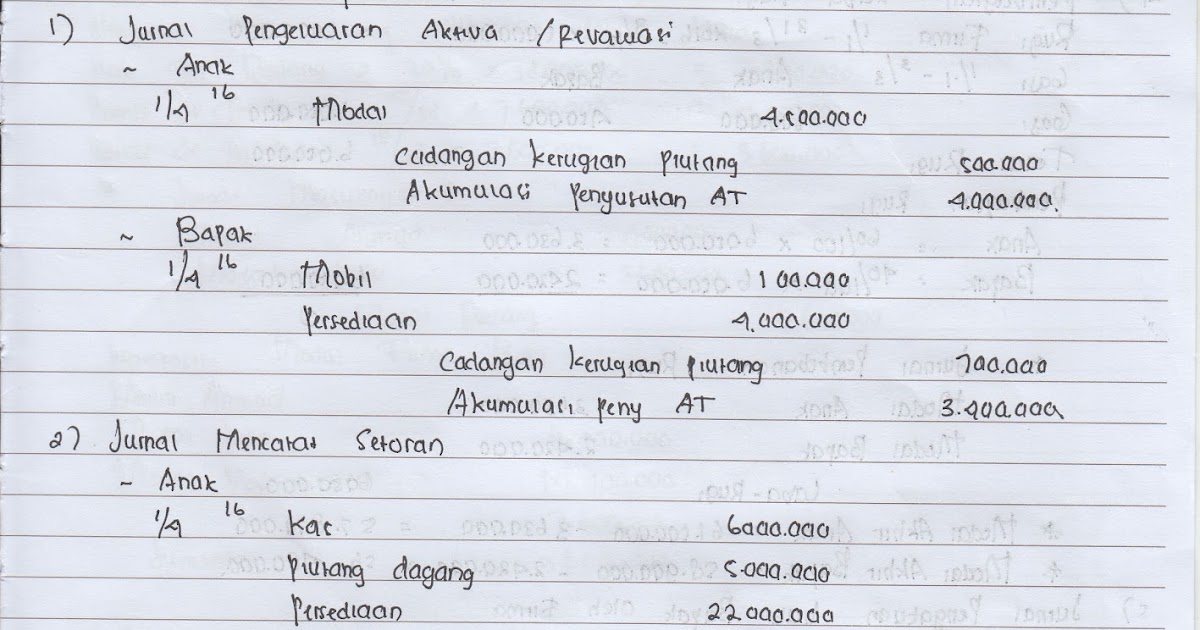 1) Jurnal Pengeluaran Aktiva / Revaluasi
~ Anak
1/4 16 Modal 4.500.000
Cadangan kerugian piutang 500.000
Akumulasi Penyusutan AT 4.000.000.
~ Bapak
1/4 16 Mobil 100.000
Persediaan 4.000.000
Cadangan kerugian piutang 700.000
Akumulasi peny AT 3.400.000
2) Jurnal Mencatat Setoran
~ Anak
1/4 16 Kas 6000.000
Piutang dagang 5.000.000
Persediaan 22.000.000